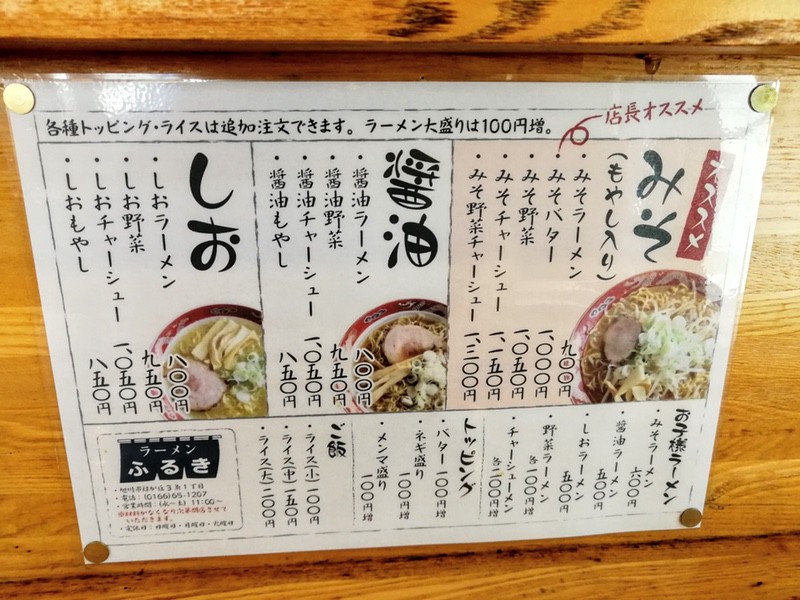 各種トッピング・ライスは追加注文できます。ラーメン大盛りは100円増。
店長オススメ
オススメ
みそ
(もやし入り)
・みそラーメン 九〇〇円
・みそバター 一、〇〇〇円
・みそ野菜 一、〇五〇円
・みそチャーシュー 一、一五〇円
・みそ野菜チャーシュー 一、三〇〇円
醤油
・醤油ラーメン 八〇〇円
・醤油野菜 九五〇円
・醤油チャーシュー 一、〇五〇円
・醤油もやし 八五〇円
しお
・しおラーメン 八〇〇円
・しお野菜 九五〇円
・しおチャーシュー 一、〇五〇円
・しおもやし 八五〇円
お子様ラーメン
・みそラーメン 六〇〇円
・醤油ラーメン 五〇〇円
・しおラーメン 五〇〇円
・野菜ラーメン 各一〇〇円増
・チャーシューメン 各一〇〇円増
トッピング
・バター 一〇〇円増
・ネギ盛り 一〇〇円増
・メンマ盛り 一〇〇円増
ご飯
・ライス(小) 一〇〇円
・ライス(中) 一五〇円
・ライス(大) 二〇〇円
ラーメン
ふるき
・旭川市緑が丘3条1丁目
・電話:(0166)65-1207
・営業時間:(水~土) 11:00~
※材料がなくなり次第閉店させて
いただきます。
・定休日:日曜日・月曜日・火曜日